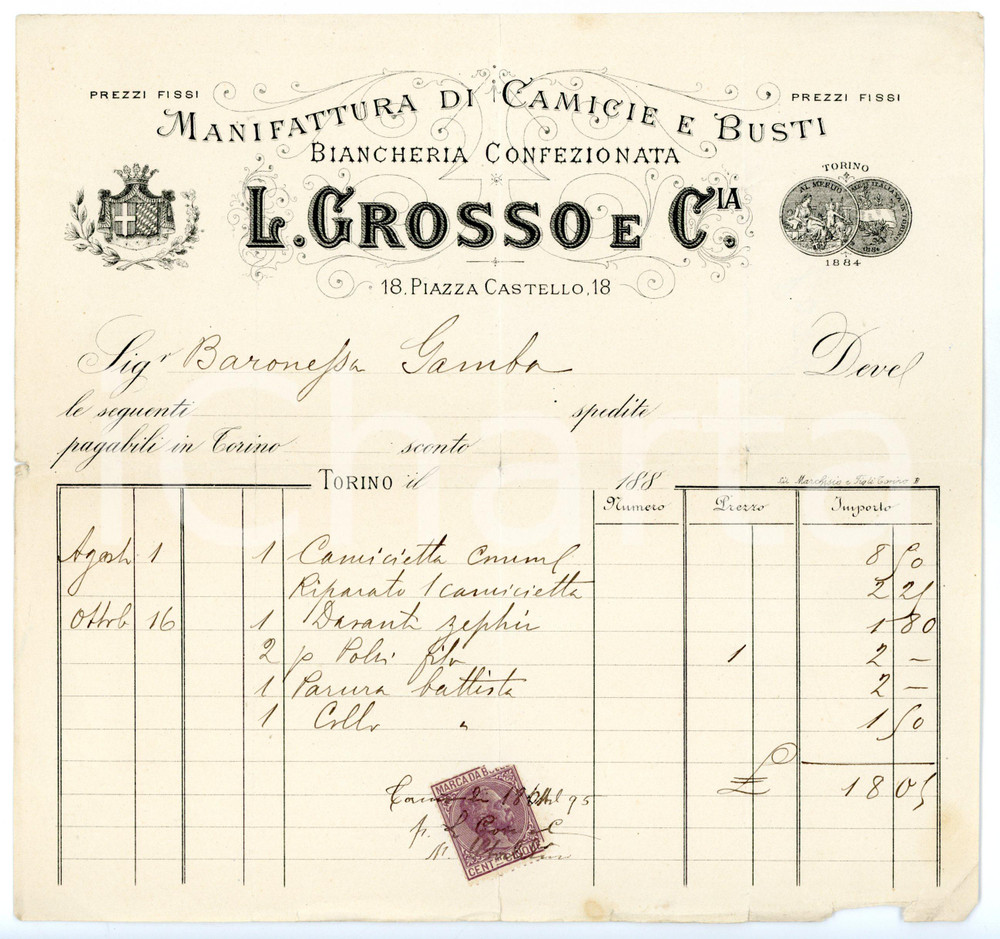 PREZZI FISSI
PREZZI FISSI
MANIFATTURA DI CAMICIE E BUSTI
BIANCHERIA CONFEZIONATA
L. GROSSO E CIA.
18, PIAZZA CASTELLO, 18
TORINO
AL MERITO
1884
Sigr Baronessa Gamba Deve
le seguenti spedite
pagabili in Torino sconto
TORINO il 188
Numero Prezzo Importo
Agosto 1 1 Camicietta 8 50
Riparato 1 camicietta 2 25
Ottob 16 1 Davanti zephir 1 80
2 p Polsi filo 1 2 —
1 Parura battista 2 —
1 Collo " 1 50
£ 18 05
MARCA DA BOLLO
95
CENT. CINQUE
iCharta